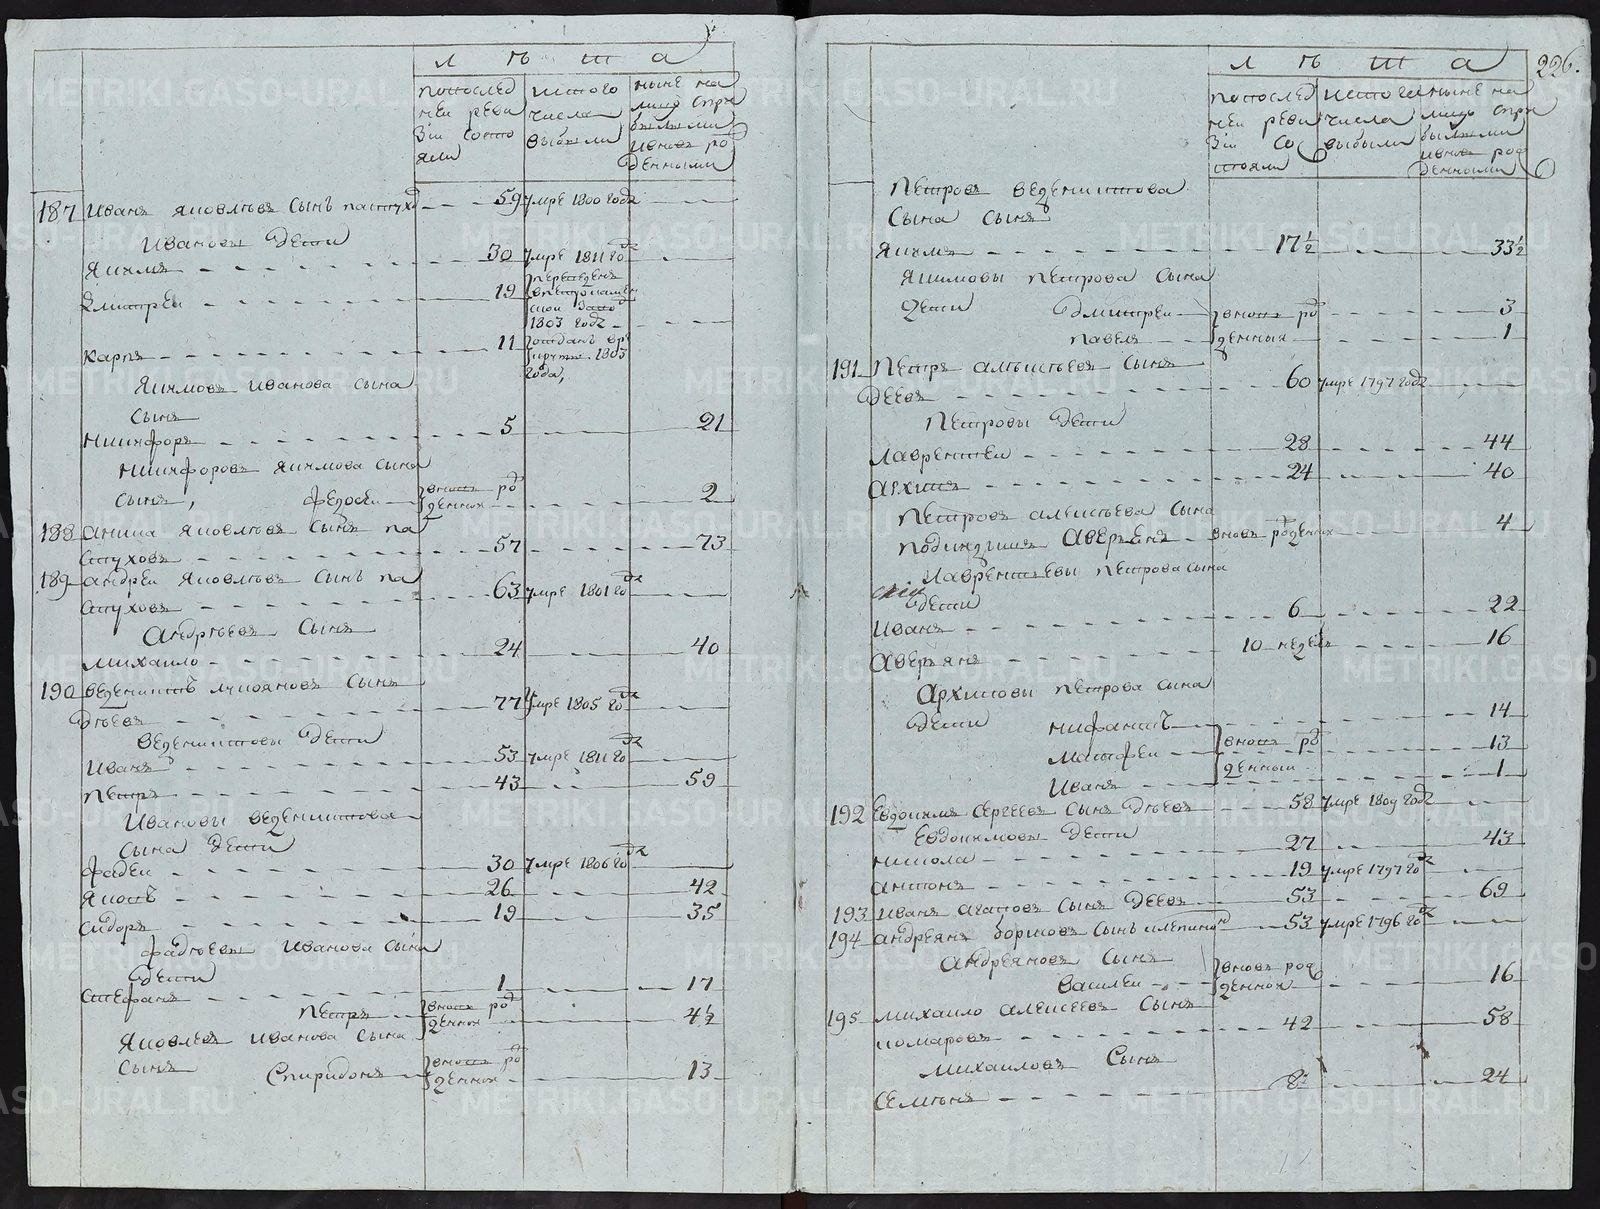 л ѣ т а
по послед
ней реви
зіи состо
яли
ис того
числа
выбыли
ныне на
лицо с при
былыми
и вновь ро
жденными
187 Иванъ Яковлевъ сынъ пастухо — 59 умре 1800 года
Ивановы дети
Якимъ — 30 умре 1811 го
Дмитрей — 19 переведен
1803 года
Карпъ — 11 отданъ в ре
круты 1803
года,
Якимовъ Иванова сына
сынъ
Никифоръ — 5 — 21
Никифоровъ Якимова сына
сынъ, Федосей вновь ро
жденной — 2
188 Аника Яковлевъ сынъ па
стуховъ — 57 — 73
189 Андрей Яковлевъ сынъ па
стуховъ — 63 умре 1801 го
Андреевъ сынъ
Михайло — 24 — 40
190 Веденихтъ сынъ
Деевъ — 77 умре 1805 го
Веденихтовы дети
Иванъ — 53 умре 1811 го
Петръ — 43 — 59
Ивановы Веденихтова
сына дети
Фадей — 30 умре 1806 го
Яковъ — 26 — 42
Сидоръ — 19 — 35
Фадеевы Иванова сына
дети
Стефанъ — 1 — 17
Петръ вновь ро
жденной — 4½
Яковлевъ Иванова сына
сынъ Спиридонъ вновь ро
жденной — 13
226.
л ѣ т а
по послед
ней реви
зіи со
стояли
ис того
числа
выбыли
ныне на
лицо с при
былыми
и вновь ро
жденными
Петровъ Веденихтова
сына сынъ
Якимъ — 17½ — 33½
Якимовы Петрова сына
дети Дмитрей вновь ро — 3
Павелъ жденныя — 1
191 Петръ Алексеевъ сынъ
Деевъ — 60 умре 1797 года
Петровы дети
Лаврентей — 28 — 44
Архипъ — 24 — 40
Петровъ Алексеева сына
Аверьянъ — вновь рожденной — 4
Лаврентьевы Петрова сына
дети
Иванъ — 6 — 22
Аверьянъ — 10 недель — 16
Архиповы Петрова сына
дети Нифантъ — 14
Матфей вновь ро — 13
жденныи
Иванъ — 1
192 Евдокимъ Сергеевъ сынъ Деевъ — 58 умре 1809 года
Евдокимовы дети
Никола — 27 — 43
Антонъ — 19 умре 1797 го
193 Иванъ Агаповъ сынъ Деевъ — 53 — 69
194 Андреянъ сынъ — 53 умре 1796 го
Андреяновъ сынъ
Василей вновь рож
денной — 16
195 Михайло Алексеевъ сынъ
комаровъ — 42 — 58
Михайловъ сынъ
Семенъ — 8 — 24